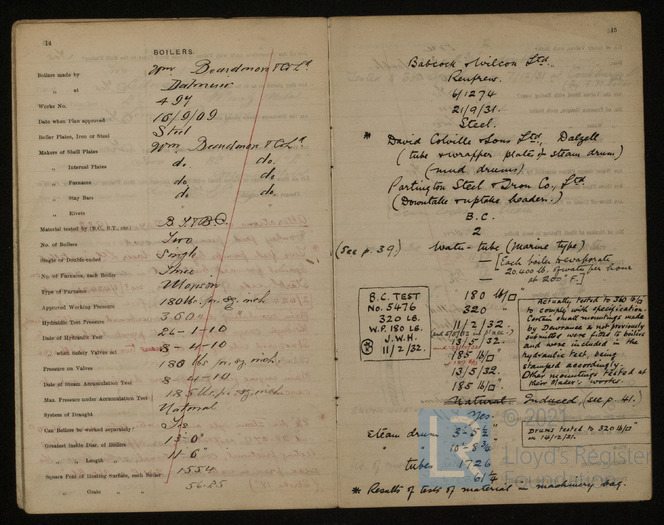 14
BOILERS.
Boilers made by Wm Beardmore & Co Ld
" at Dalmuir
Works No. 497
Date when Plan approved 15/9/09
Boiler Plates, Iron or Steel Steel
Makers of Shell Plates Wm Beardmore & Co Ld
" Internal Plates do. do.
" Furnaces do. do.
" Stay Bars do. do.
" Rivets
Material tested by (B.C., B.T., etc.) B.T. & B.C.
No. of Boilers Two
Single or Double-ended Single
No. of Furnaces, each Boiler Three
Type of Furnaces Morison
Approved Working Pressure 180 lb. pr. sq. inch
Hydraulic Test Pressure 360 "
Date of Hydraulic Test 26-1-10
" when Safety Valves set 8-4-10
Pressure on Valves 180 lbs pr. sq. inch.
Date of Steam Accumulation Test 8-4-10
Max. Pressure under Accumulation Test 185 lbs pr. sq. inch
System of Draught Natural
Can Boilers be worked separately? Yes
Greatest Inside Diar. of Boilers 15'-0"
" " Length " 11'-6"
Square Feet of Heating Surface, each Boiler 1554
" " Grate " " 56.25
15
Babcock & Wilcox Ltd.
Renfrew.
6/1274
21/9/31.
Steel.
* David Colville & Sons Ltd, Dalzell
(tube & wrapper plates for steam drum)
(mud drums)
Partington Steel & Iron Co., Ltd
(Downtake & uptake headers.)
B.C.
2
(See p. 39) Water-tube (Marine type)
— [Each boiler to evaporate
20,400 lb. of water per hour
— at 200° F.]
B.C. TEST
No. 5476
320 LB.
W.P. 180 LB.
J.W.H.
11/2/32.
180 lb/□"
320 "
11/2/32.
13/5/32.
185 lb/□"
13/5/32.
185 lb/□".
Actually tested to 360 lb/□"
to comply with specification.
Certain small mountings made
by Dewrance & not previously
submitted were fitted to boilers
and were included in the
hydraulic test, being
stamped accordingly.
Other mountings tested at
their Makers' works.
Natural Induced, (see p. 41.)
Yes.
Drums tested to 320 lb/□"
in 14/12/31.
Steam drum 3'-5½"
"
tubes 1726
61¼
* Results of tests of material in machinery bag.
© 2021
Lloyd's Register
Foundation